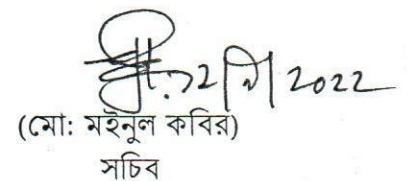 2022
(মো: মইনুল কবির)
সচিব